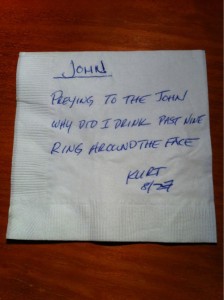 JOHN
PREYING TO THE JOHN
WHY DID I DRINK PAST NINE
RING AROUND THE FACE
KURT
8/29